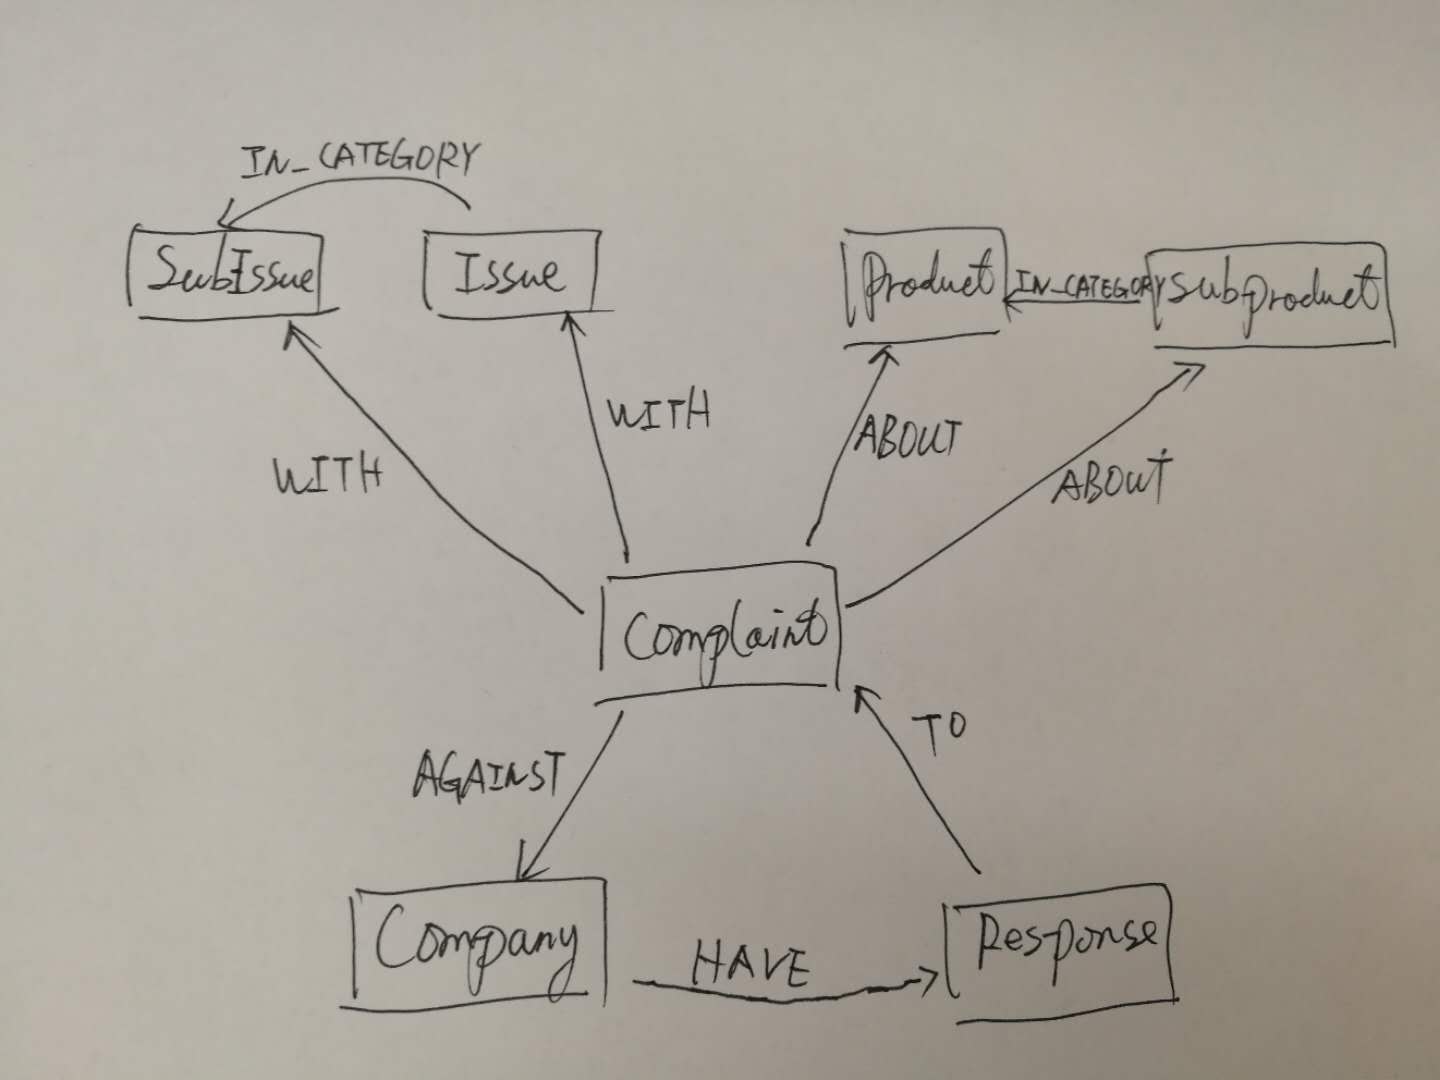 IN_CATEGORY
SubIssue
Issue
Product
IN_CATEGORY
Subproduct
WITH
WITH
ABOUT
ABOUT
Complaint
AGAINST
TO
Company
HAVE
Response